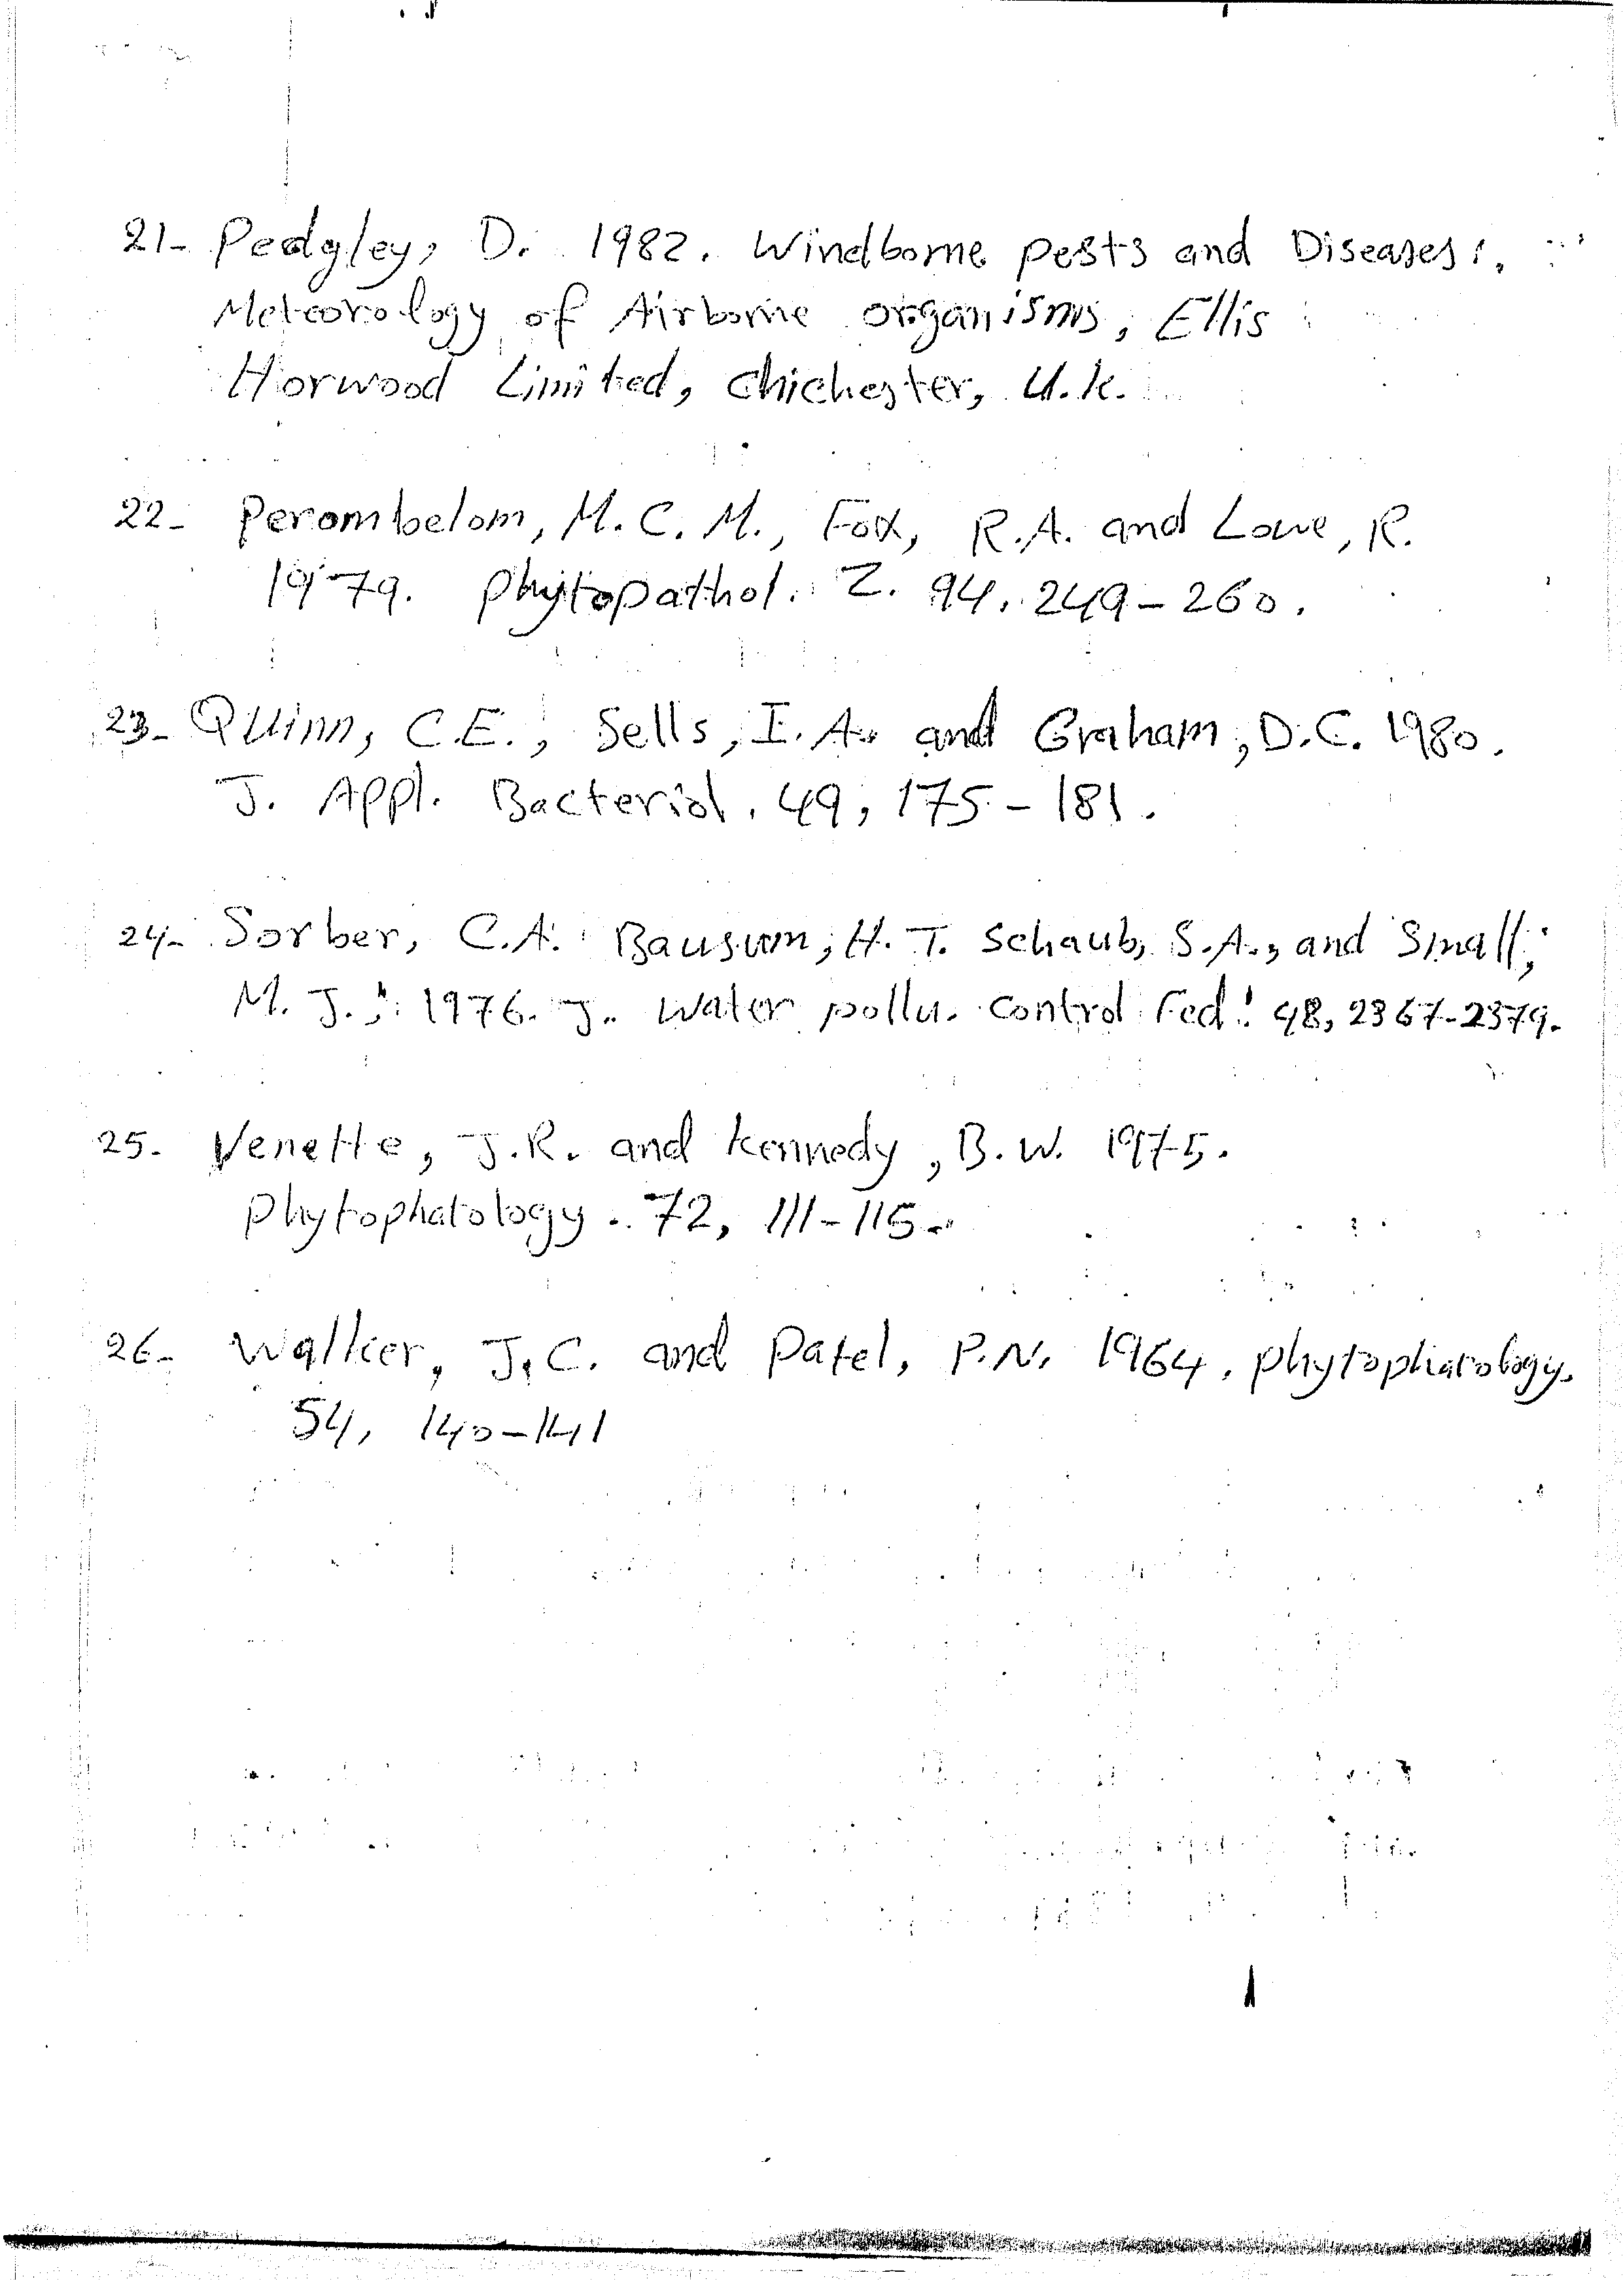 21- Pedgley, D. 1982. Windborne pests and Diseases:,
Meteorology of Airborne organisms, Ellis
Horwood Limited, Chichester, U.K.
22- Perombelom, M.C.M., Fox, R.A. and Lowe, R.
1979. Phytopathol. Z. 94, 249-260.
23- Quinn, C.E., Sells, I.A. and Graham, D.C. 1980.
J. Appl. Bacteriol. 49, 175-181.
24- Sorber, C.A. Bausum, H.T. Schaub, S.A., and Small,
M.J., 1976. J. Water pollu. control Fed. 48, 2367-2379.
25. Venette, J.R. and Kennedy, B.W. 1975.
Phytophatology. 72, 111-115.
26- Walker, J.C. and Patel, P.N. 1964. Phytophatology,
54, 140-141